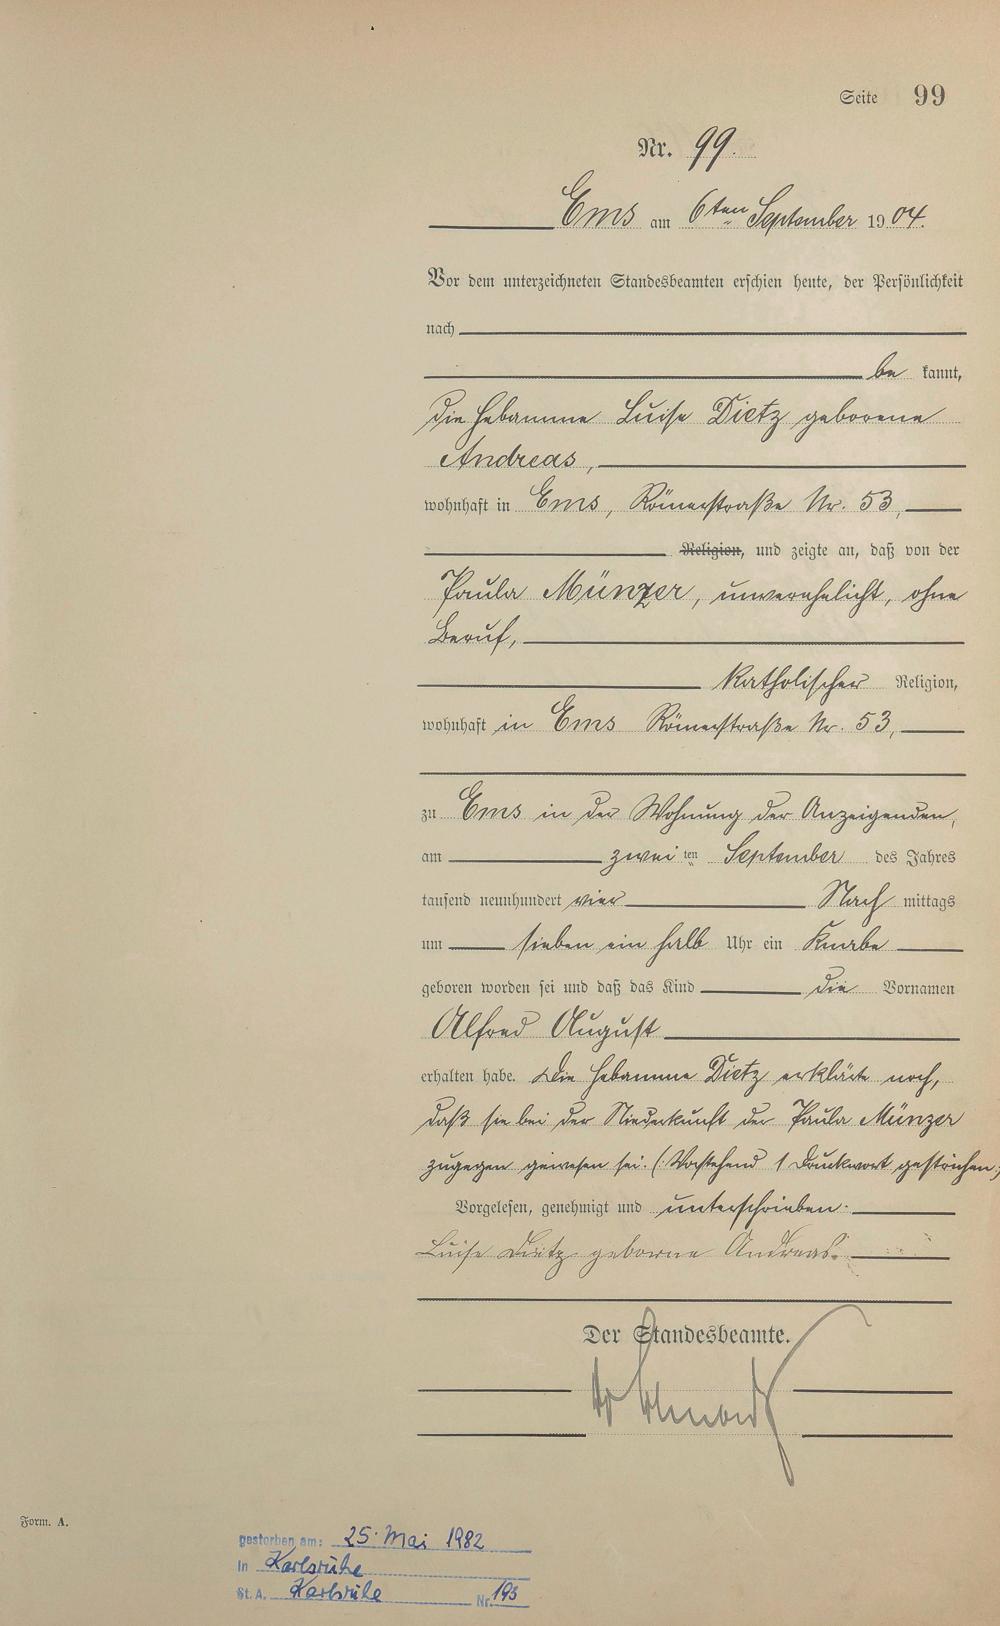 Seite 99
Nr. 99.
Ems am 6ten September 1904.
Vor dem unterzeichneten Standesbeamten erschien heute, der Persönlichkeit
nach
be kannt,
die Hebamme Luise Dietz geborene
Andreas,
wohnhaft in Ems, Römerstraße Nr. 53,
Religion, und zeigte an, daß von der
Paula Münzer, unverehelicht, ohne
Beruf,
katholischer Religion,
wohnhaft in Ems Römerstraße Nr. 53,
zu Ems in der Wohnung der Anzeigenden,
am zwei ten September des Jahres
tausend neunhundert vier Nach mittags
um sieben ein halb Uhr ein Knabe
geboren worden sei und daß das Kind die Vornamen
Alfred August
erhalten habe. Die Hebamme Dietz erklärte noch,
daß sie bei der Niederkunft der Paula Münzer
zugegen gewesen sei. (: Vorstehend 1 Druckwort gestrichen:
Vorgelesen, genehmigt und unterschrieben.
Luise Dietz geborne Andreas.
Der Standesbeamte.
Form. A.
gestorben am: 25. Mai 1982
In Karlsruhe
St. A. Karlsruhe Nr. 195